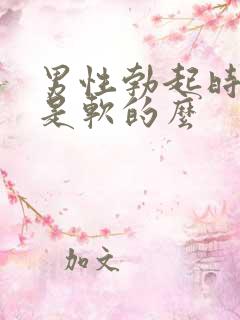 男性勃起時
是軟的麼
加文